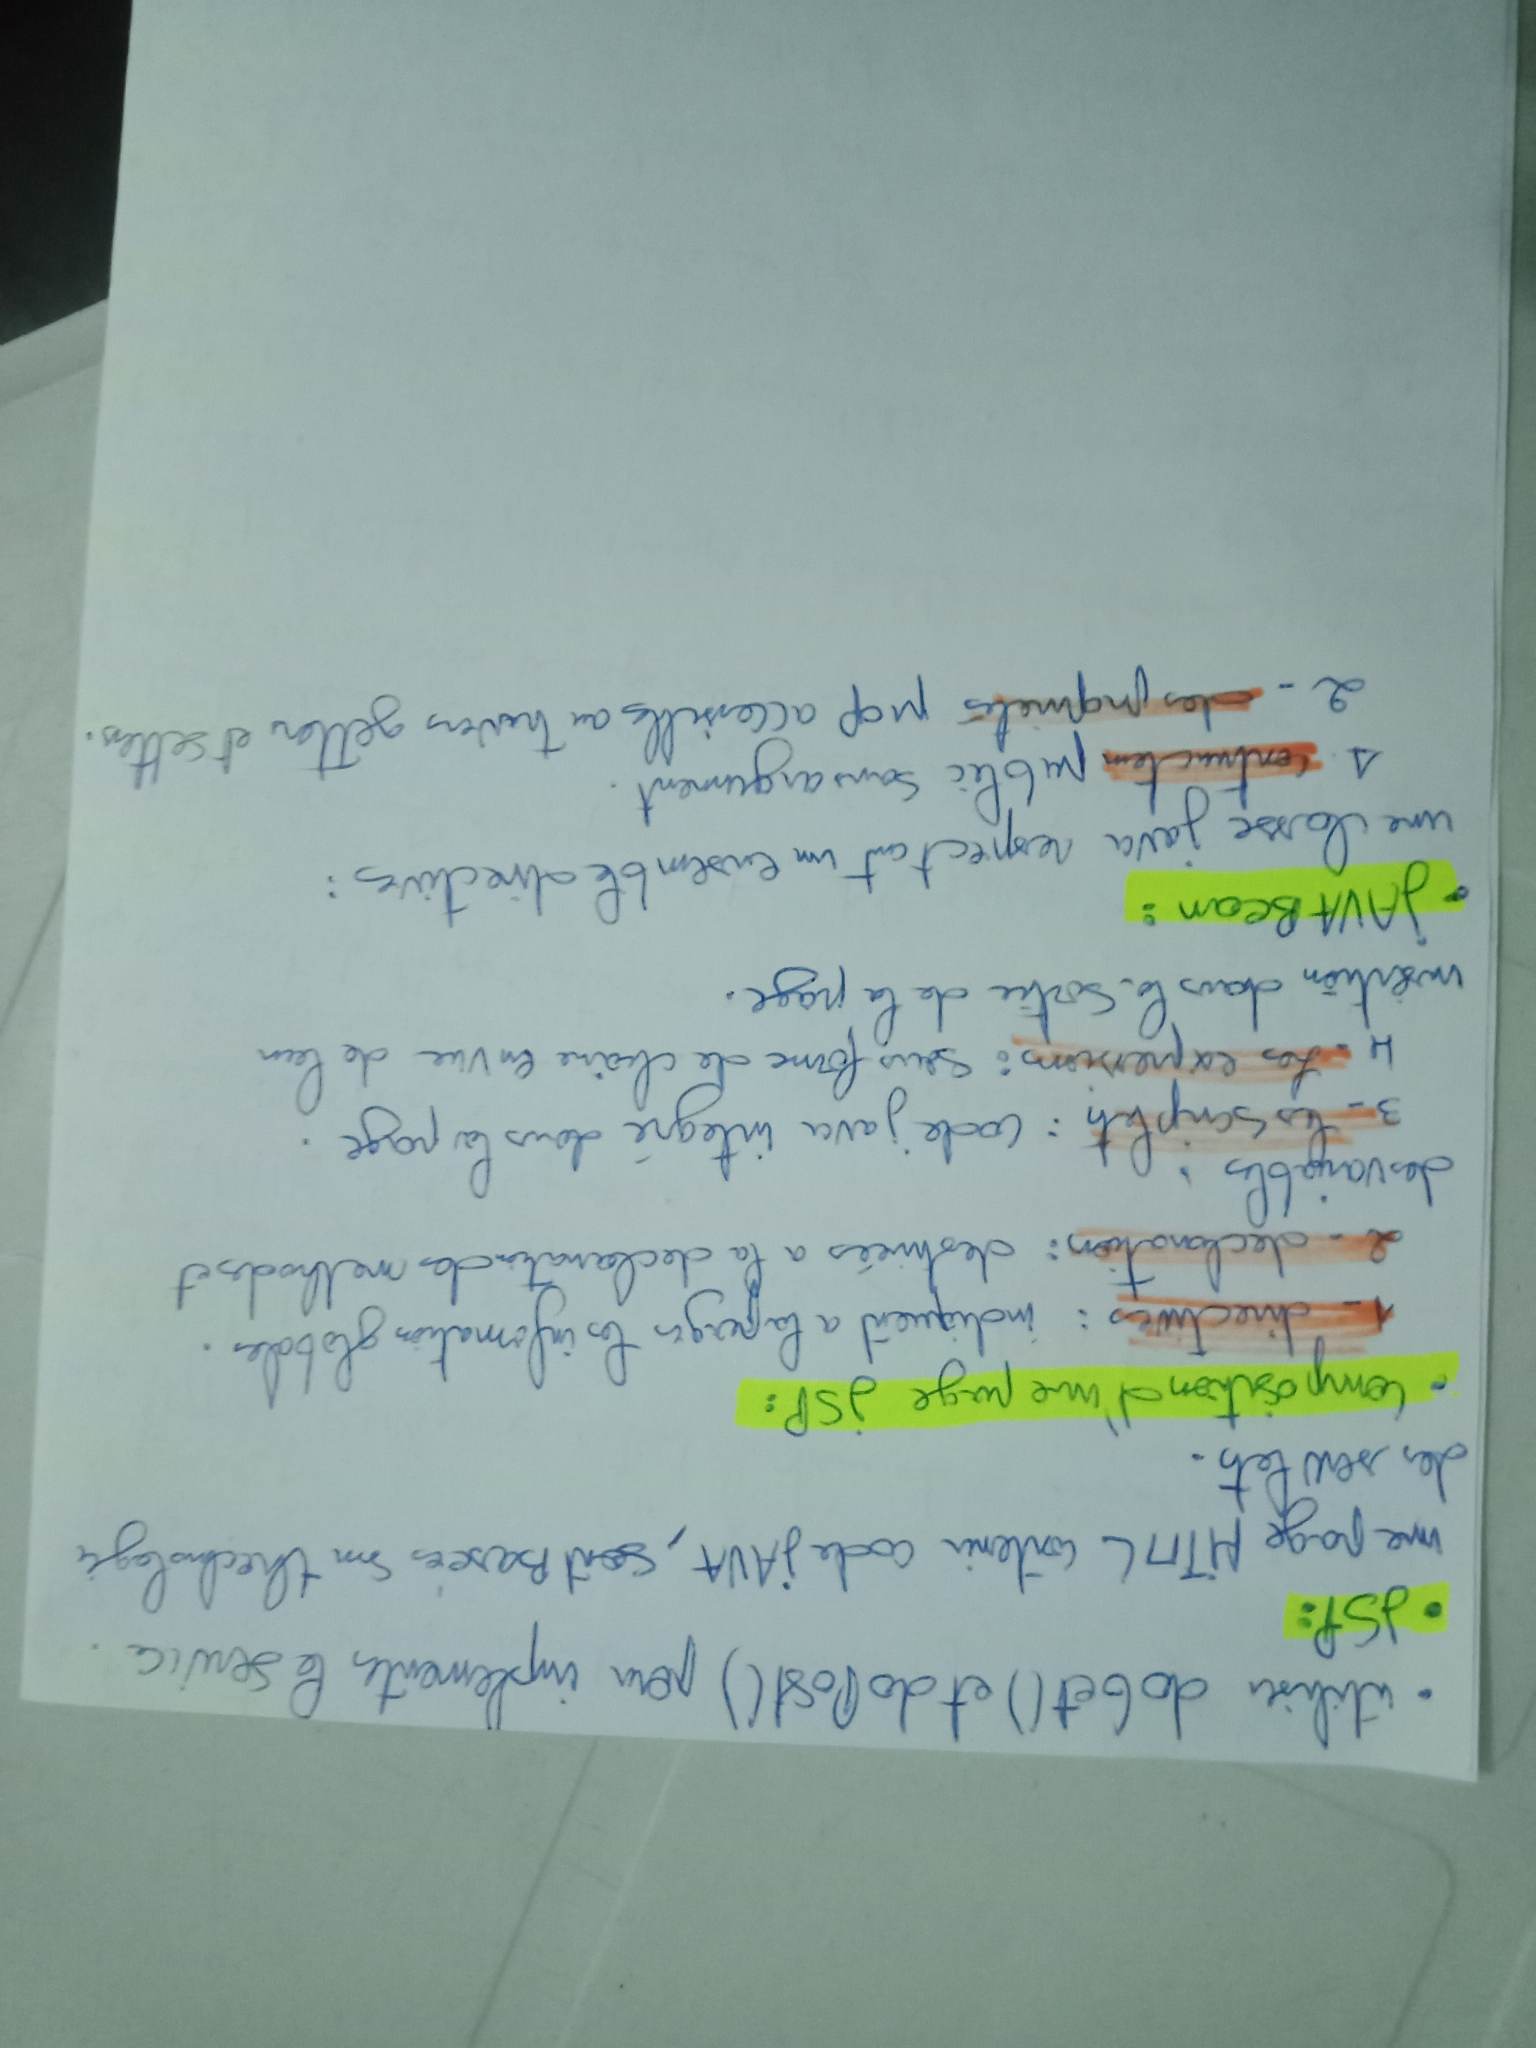 • utiliser doGet() et doPost() pour implementer le service.
• JSP:
une page HTML contenir code JAVA, sont Basées sur thechnologie
des servlets.
• Composition d'une page JSP:
1- directives : indiquent a la pages les information globales.
2- declaration : destinées a la declaration des methodes et
des variables.
3- les scriplets : code java integré dans la page.
4- Les expressions : sous forme de chaine en vue de leur
insértion dans la sortie de la page.
• JAVA Bean :
une classe java respectant un ensemble directives :
1. contructeur public sans argument.
2- des propriétés prop accessilles au travers getter et setters.